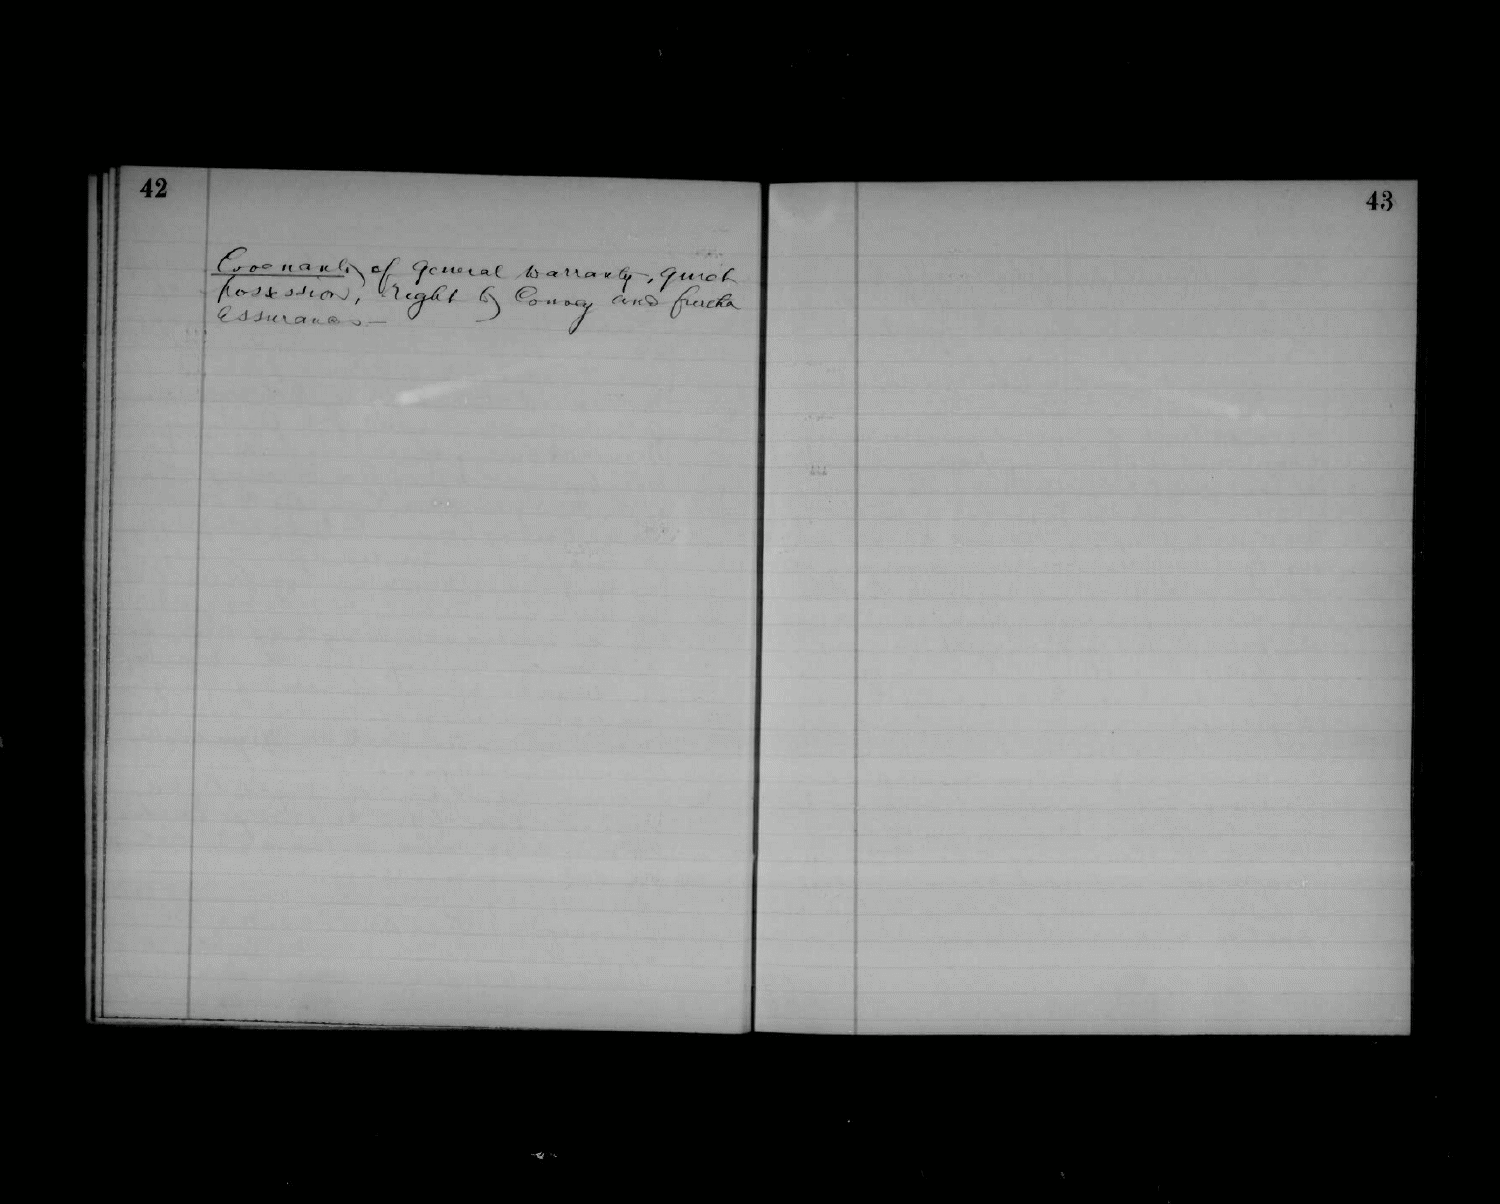 42
Covenants of general warranty, quiet
possession, right to Convey and further
assurances —
43